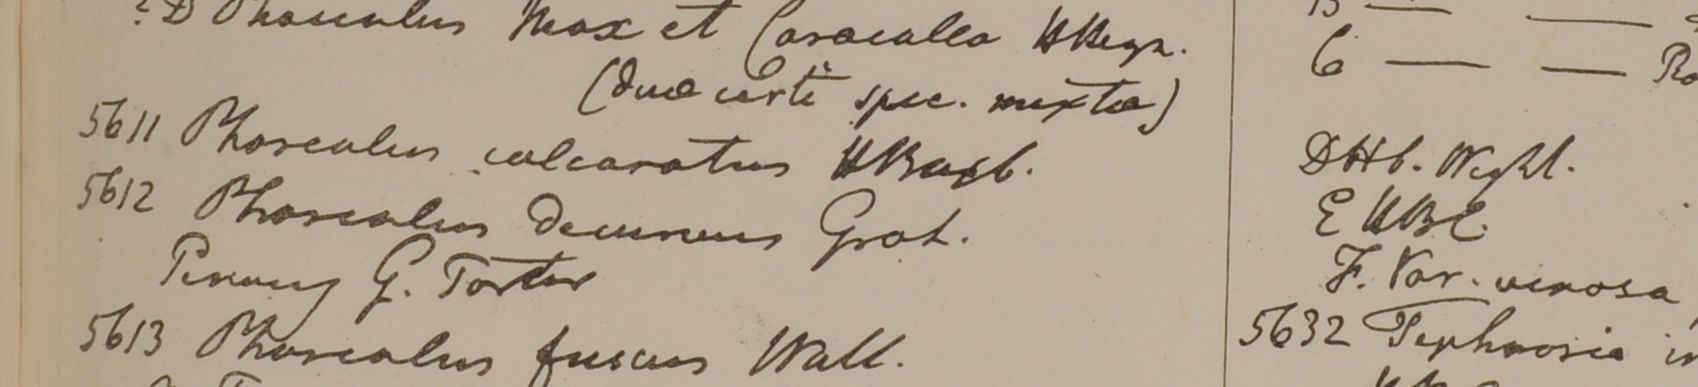 ? D Phaseolus Max et Caracalla HBeng.
(duae certe spec. mixtae)
5611 Phaseolus calcaratus HRoxb.
5612 Phaseolus decurrens Grah.
Penang G. Porter
5613 Phaseolus fuscus Wall.
B — —
C — — Ro
D Hb. Wight.
E HBC.
F. Var. venosa
5632 Tephrosia in